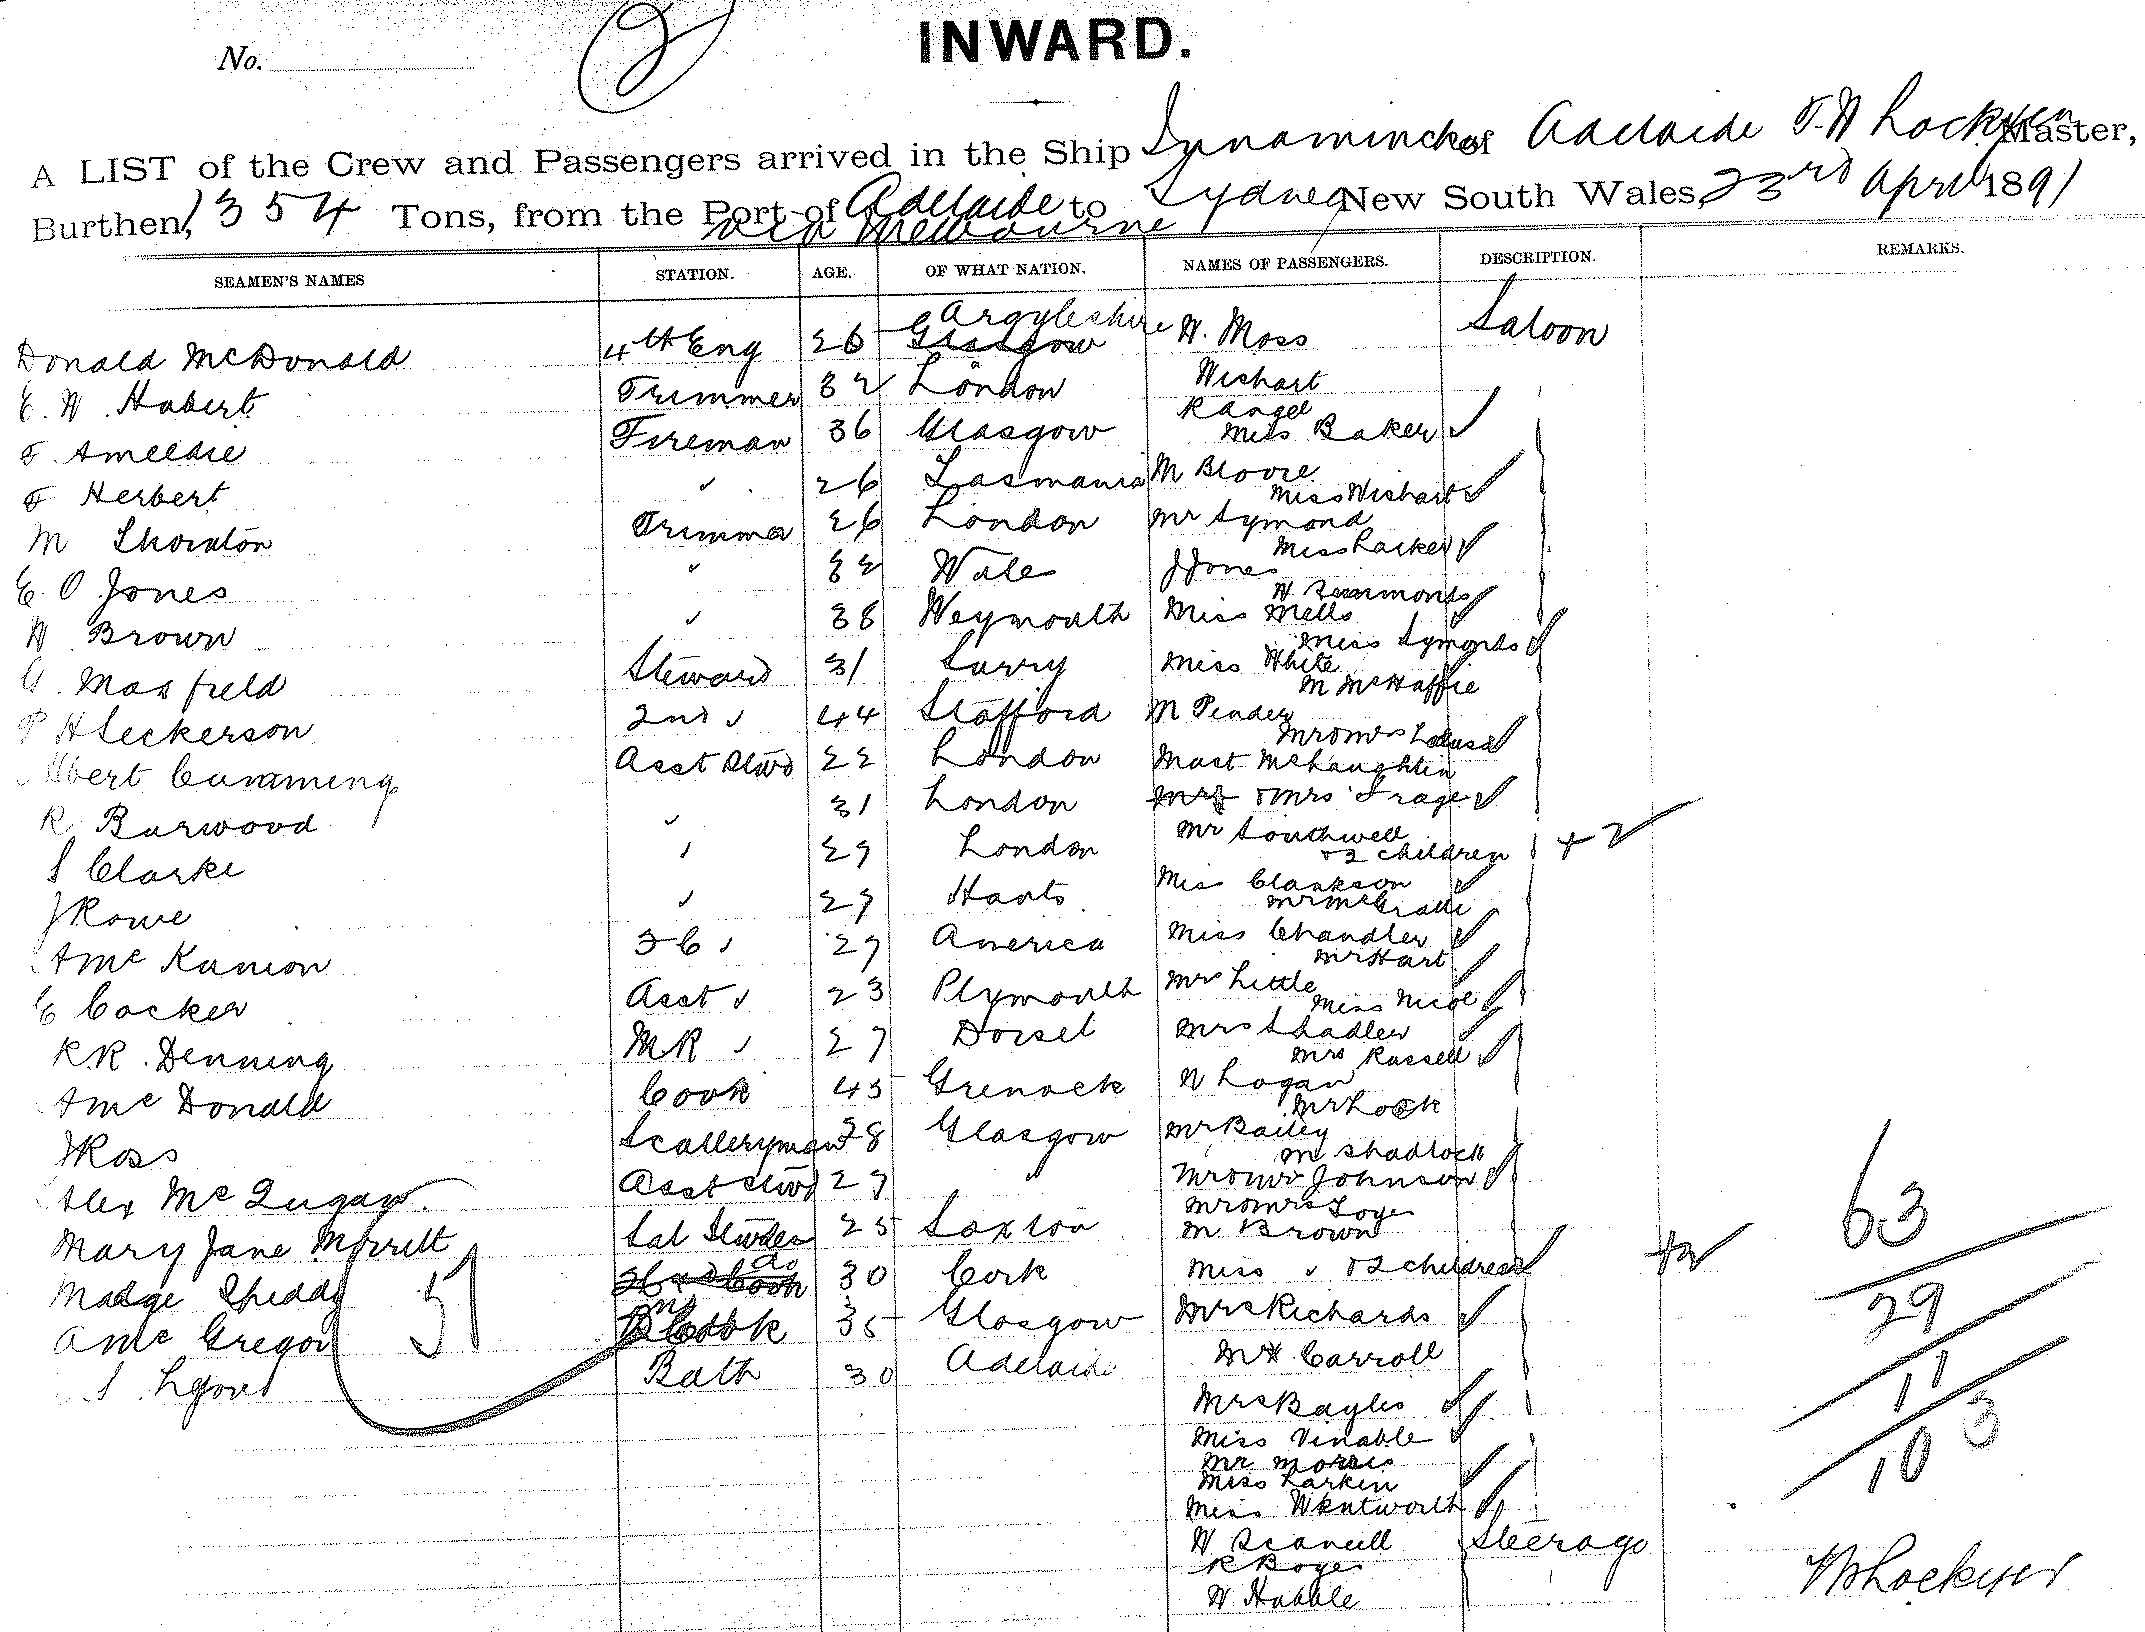 INWARD.
No.
A LIST of the Crew and Passengers arrived in the Ship of Adelaide Master,
Burthen, 1354 Tons, from the Port of Adelaide to Sydney New South Wales, 23rd April 1891
via Melbourne
SEAMEN'S NAMES STATION. AGE. OF WHAT NATION. NAMES OF PASSENGERS. DESCRIPTION. REMARKS.
Argyleshire
Donald McDonald 4th Eng 26 Glasgow W. Moss Saloon
E. W. Habert Trimmer 32 London Wishart
Rangel
F. 36 Glasgow Miss Baker
Fireman
F Herbert 26 Tasmania M
Miss Wishart
M Thornton Trimmer 26 London Mr Symond
Miss
E. O Jones 32 Wales J Jones
W
W Brown 38 Weymouth Miss Mells
Miss Symonds
G. Maxfield Steward 31 Surry Miss White
M McHaffie
P H Seckerson 2nd 44 Stafford M Pender
Albert Cumming Asst Stwd 22 London Mast McLaughlin
R Burwood 31 London & Mrs
Mr Southwell
S Clarke 29 London & 2 children + 2
J Rowe 27 Hants Miss Clarkson
A Mc 3 C 27 America Miss Chandler
Mr Hart
E Cocker Asst 23 Plymouth Mrs Little
Miss Nicol
R.R. Denning MR 27 Dorset Mrs
Mrs Russell
A Mc Donald Cook 45 Grenock W Logan
Mr Lock
J Ross Sculleryman 28 Glasgow Mr Bailey
M Shadlock
Alex Asst Stwd 27 Mr & Mrs Johnson
Mr & Mrs
Mary Jane Morrell Sal 25 Saxton M Brown
do
Madge 30 Cork Miss & 2 children
A Mc Gregor Cook 35 Glasgow Mrs Richards
S Bath 30 Adelaide Carroll
51
Mrs Bayles
Miss Venable
Mr Morris
Miss Larkin
Miss Wentworth
W Steerage
R
W Hubble
63
29
11
103
Lockyer